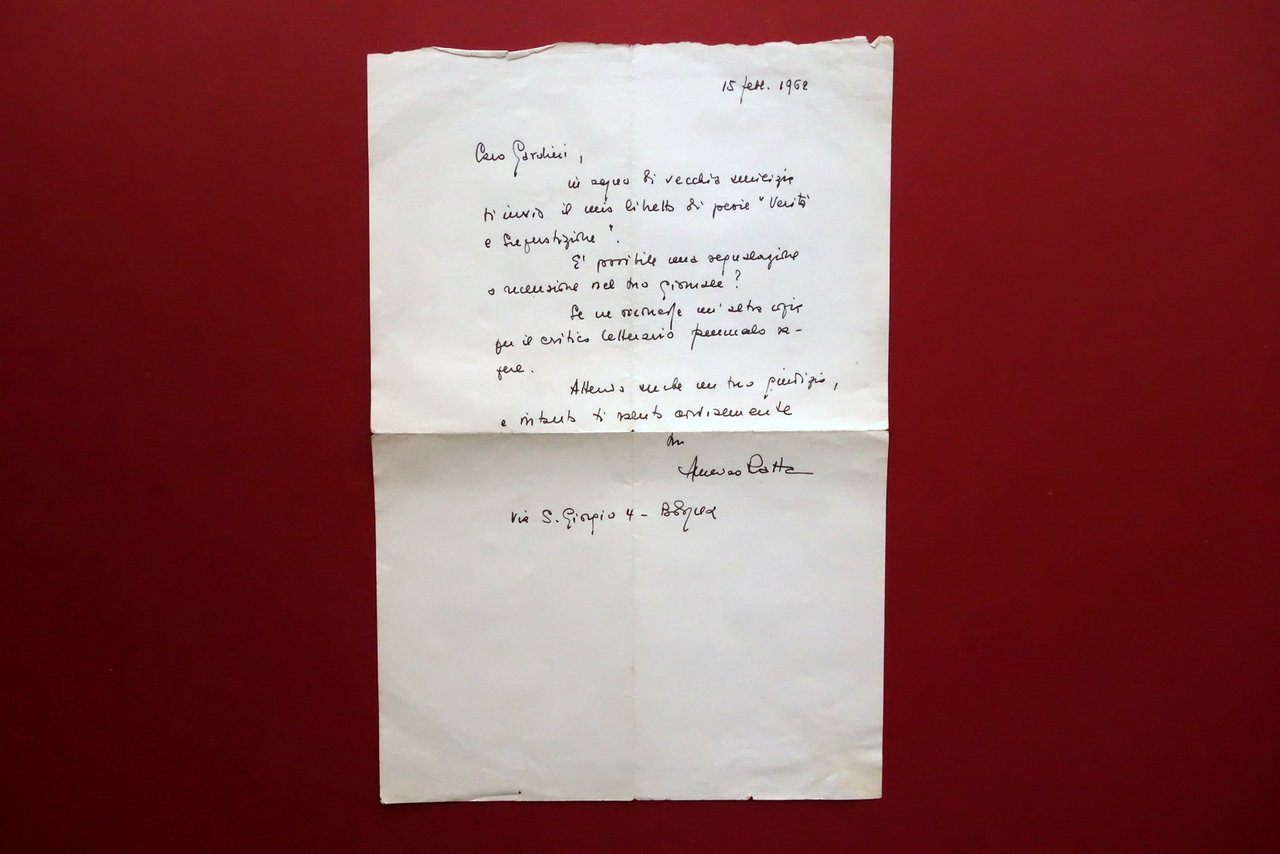 15 febb. 1962
Caro Gardini,
in segno di vecchia amicizia
ti invio il mio libretto di poesie "Verità
e Superstizione".
E' possibile una segnalazione
o recensione nel tuo giornale?
Se ne occorresse un'altra copia
per il critico letterario fammelo sa-
pere.
Attendo anche un tuo giudizio,
e intanto ti saluto cordialmente
tuo
Via S. Giorgio 4 - Bologna